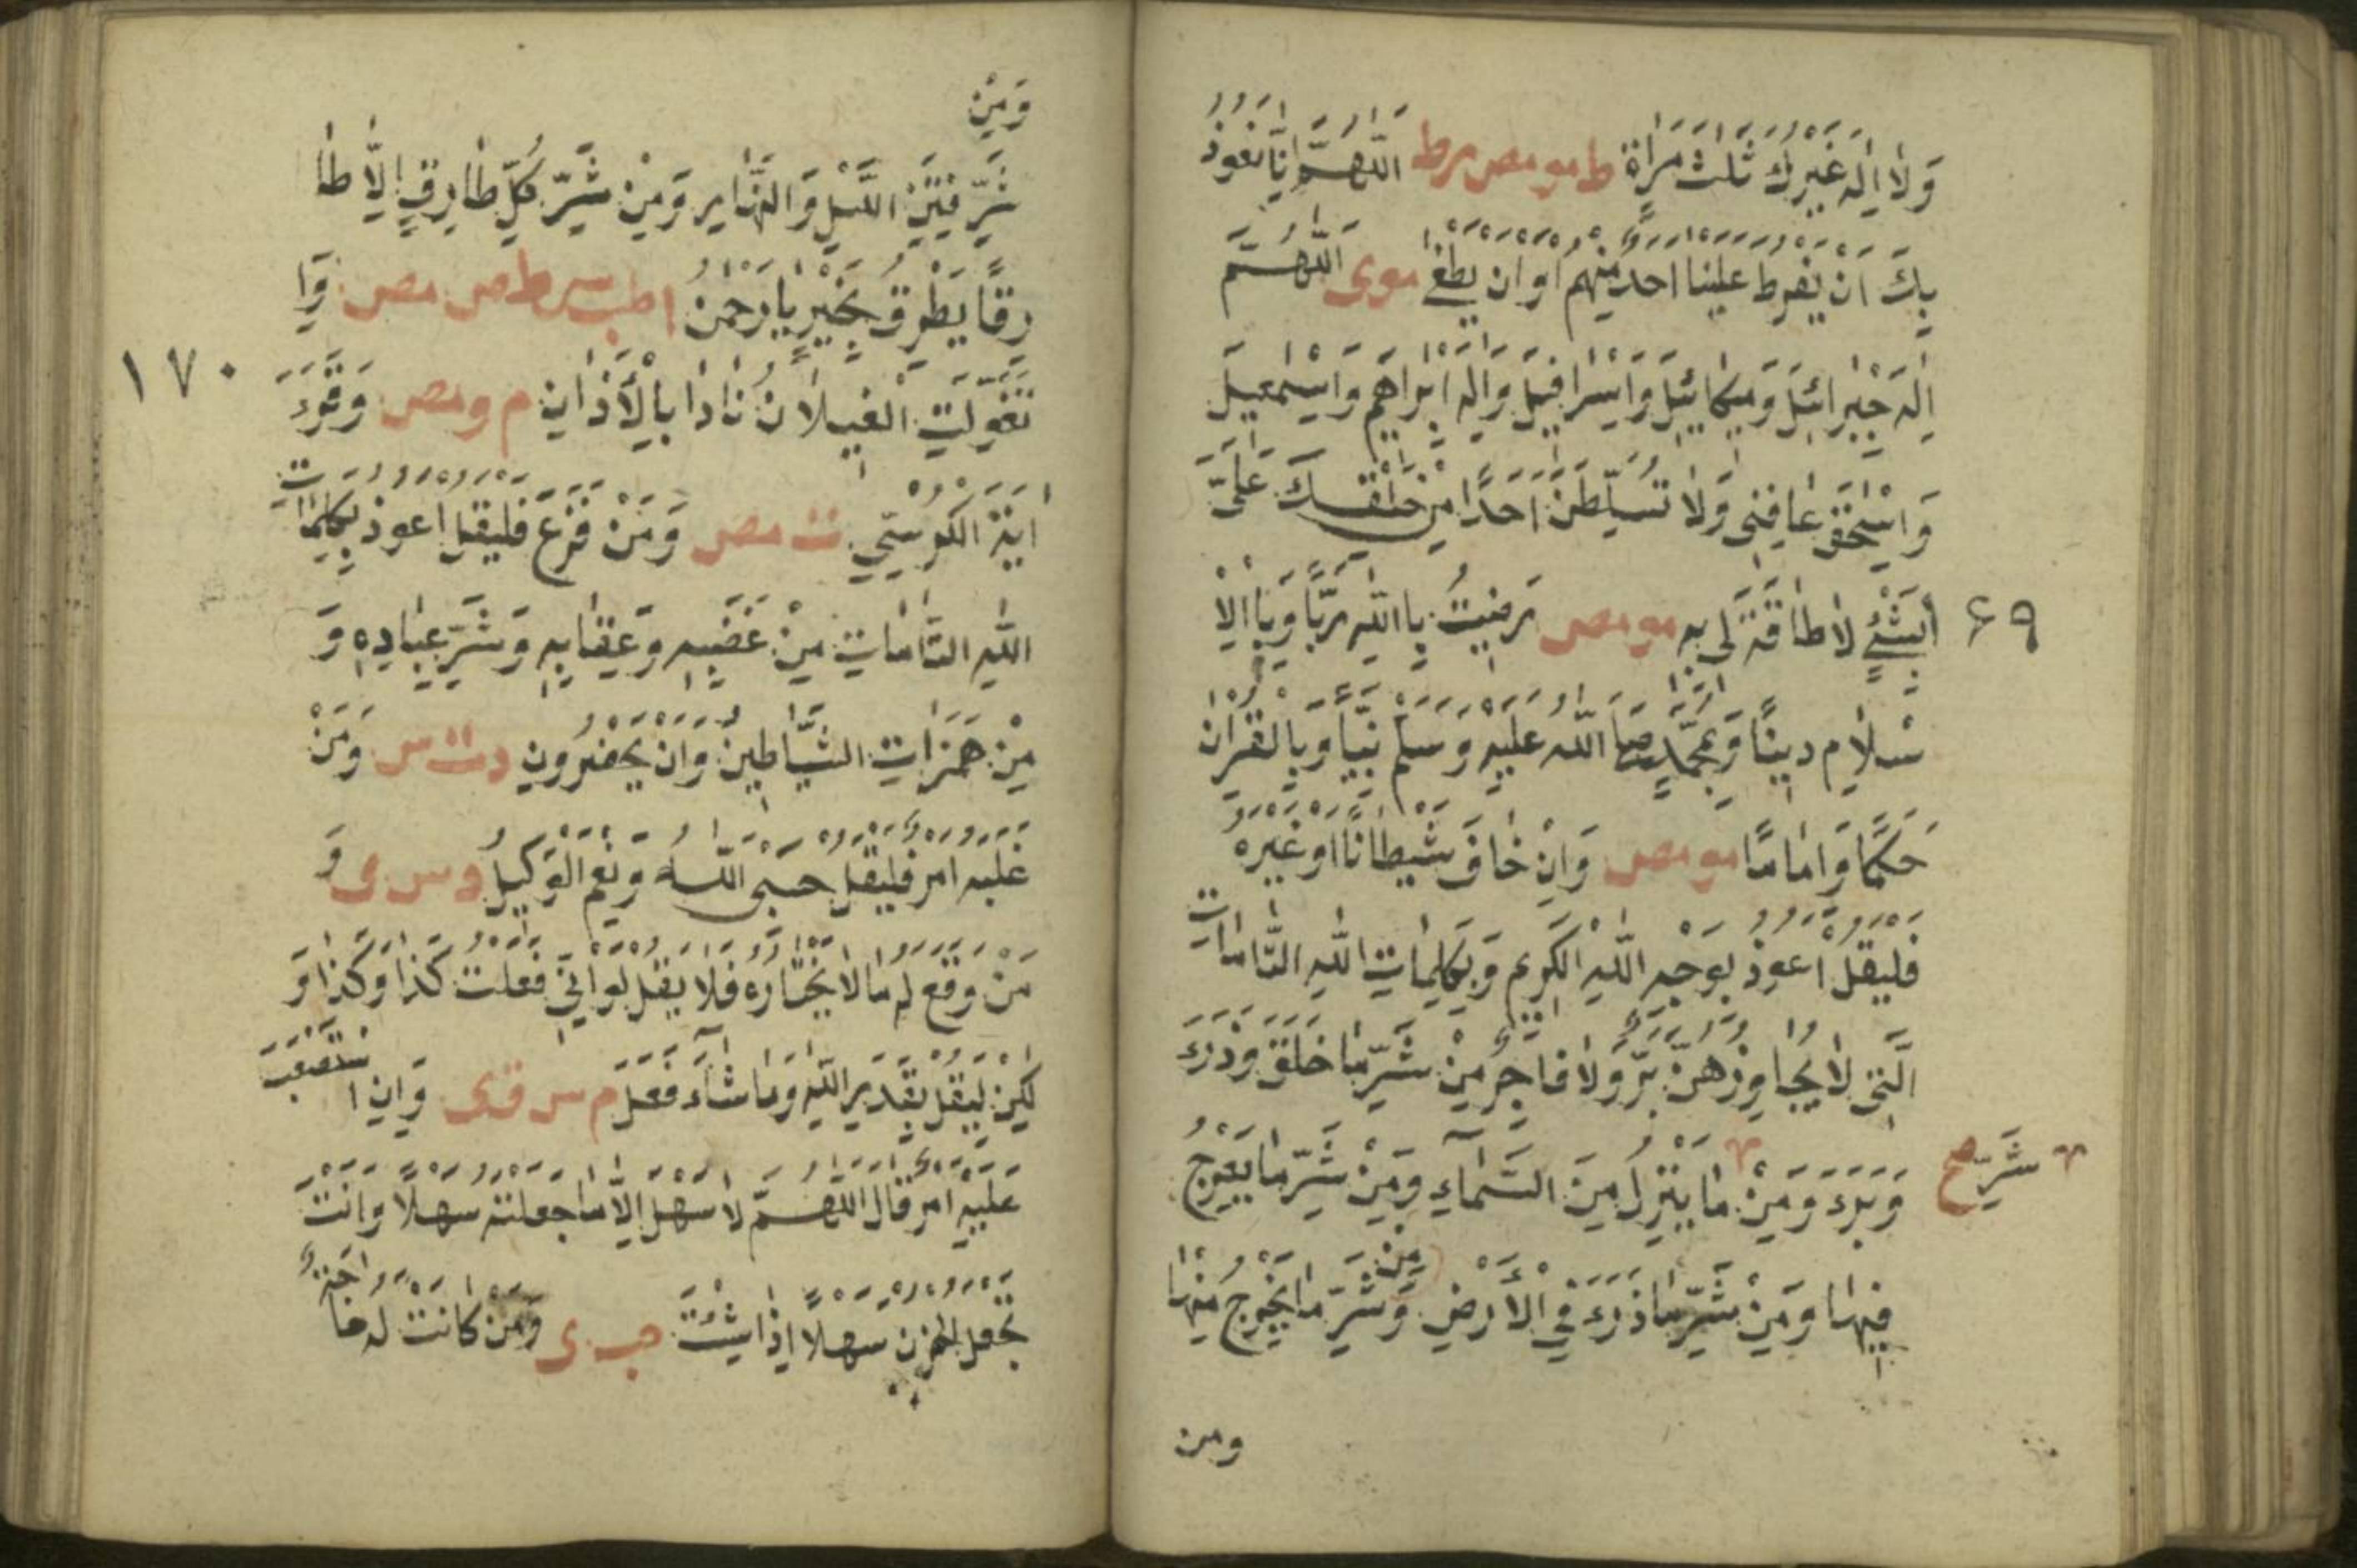 وَلَا اِلٰهَ غَيْرُكَ ثَلٰثَ مَرَّاةٍ ط مو مص مرط اَللّٰهُمَّ اِنَّا نَعُوْذُ
بِكَ اَنْ يَفْرُطَ عَلَيْنَا اَحَدٌ مِنْهُمْ اَوْ اَنْ يَطْغٰى مو ى اَللّٰهُمَّ
اِلٰهَ جَبْرَائِلَ وَمِيْكَائِيْلَ وَاِسْرَافِيْلَ وَاِلٰهَ اِبْرَاهِيْمَ وَاِسْمٰعِيْلَ
وَاِسْحٰقَ عَافِنِى وَلَا تُسَلِّطَنَّ اَحَدًا مِنْ خَلْقِكَ عَلَىَّ
۶۹ بِشَىْءٍ لَا طَاقَةَ لِى بِهِ مو مص رَضِيْتُ بِاللّٰهِ رَبًّا وَبِالْاِ
سْلَامِ دِيْنًا وَبِمُحَمَّدٍ صَلَّى اللّٰهُ عَلَيْهِ وَسَلَّمَ نَبِيًّا وَبِالْقُرْاٰنِ
حَكَمًا وَاِمَامًا مو مص وَاِنْ خَافَ شَيْطَانًا اَوْ غَيْرَهُ
فَلْيَقُلْ اَعُوْذُ بِوَجْهِ اللّٰهِ الْكَرِيْمِ وَبِكَلِمَاتِ اللّٰهِ التَّامَّاتِ
الَّتِى لَا يُجَاوِزُهُنَّ بَرٌّ وَلَا فَاجِرٌ مِنْ شَرِّ مَا خَلَقَ وَذَرَءَ
وَبَرَءَ وَمِنْ مَا يَنْزِلُ مِنَ السَّمَآءِ وَمِنْ شَرِّ مَا يَعْرُجُ
شَرِّ صح
فِيْهَا وَمِنْ شَرِّ مَا ذَرَءَ فِى الْاَرْضِ وَمِنْ شَرِّ مَا يَخْرُجُ مِنْهَا
ومن
وَمِنْ
شَرِّ فِتَنِ اللَّيْلِ وَالنَّهَارِ وَمِنْ شَرِّ كُلِّ طَارِقٍ اِلَّا طَا
رِقًا يَطْرُقُ بِخَيْرٍ يَا رَحْمٰنُ ا طب س ط مص مص وَاِ
۱۷۰
تَغَوَّلَتِ الْغِيْلَانُ نَادَا بِالْاَذَانِ م و مص وَقَرَءَ
اٰيَةَ الْكُرْسِيِّ ت مص وَمَنْ فَزِعَ فَلْيَقُلْ اَعُوْذُ بِكَلِمَاتِ
اللّٰهِ التَّامَّاتِ مِنْ غَضَبِهِ وَعِقَابِهِ وَشَرِّ عِبَادِهِ وَ
مِنْ هَمَزَاتِ الشَّيَاطِيْنِ وَاَنْ يَحْضُرُوْنِ د ت س وَمَنْ
غَلَبَهُ اَمْرٌ فَلْيَقُلْ حَسْبِىَ اللّٰهُ وَنِعْمَ الْوَكِيْلُ د س ى وَ
مَنْ وَقَعَ لَهُ مَا لَا يَخْتَارُهُ فَلَا يَقُلْ لَوْ اَنِّى فَعَلْتُ كَذَا وَكَذَا وَ
لٰكِنْ لِيَقُلْ بِقَدَرِ اللّٰهِ وَمَا شَآءَ فَعَلَ م س ق ى وَاِنِ اسْتَصْعَبَ
عَلَيْهِ اَمْرٌ قَالَ اَللّٰهُمَّ لَا سَهْلَ اِلَّا مَا جَعَلْتَهُ سَهْلًا وَاَنْتَ
تَجْعَلُ الْحَزْنَ سَهْلًا اِذَا شِئْتَ حب ى وَمَنْ كَانَتْ لَهُ حَاجَةٌ